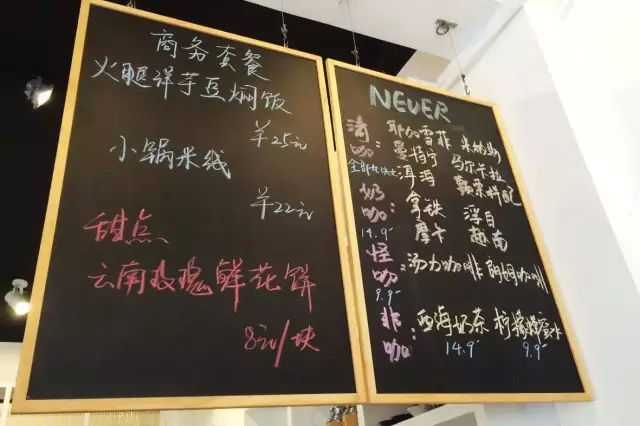 商务套餐
火腿洋芋豆焖饭
￥25元
小锅米线
￥22元
甜点
云南玫瑰鲜花饼
8元/块
NEVER
清咖: 耶加雪菲
曼特宁 马尔卡拉
洱海 拼配
奶咖: 拿铁 浮白
14.9 摩卡 越南
怪咖: 汤力咖啡 朗姆咖啡
9.9
非咖: 西海奶茶 柠檬蜂蜜水
14.9 9.9